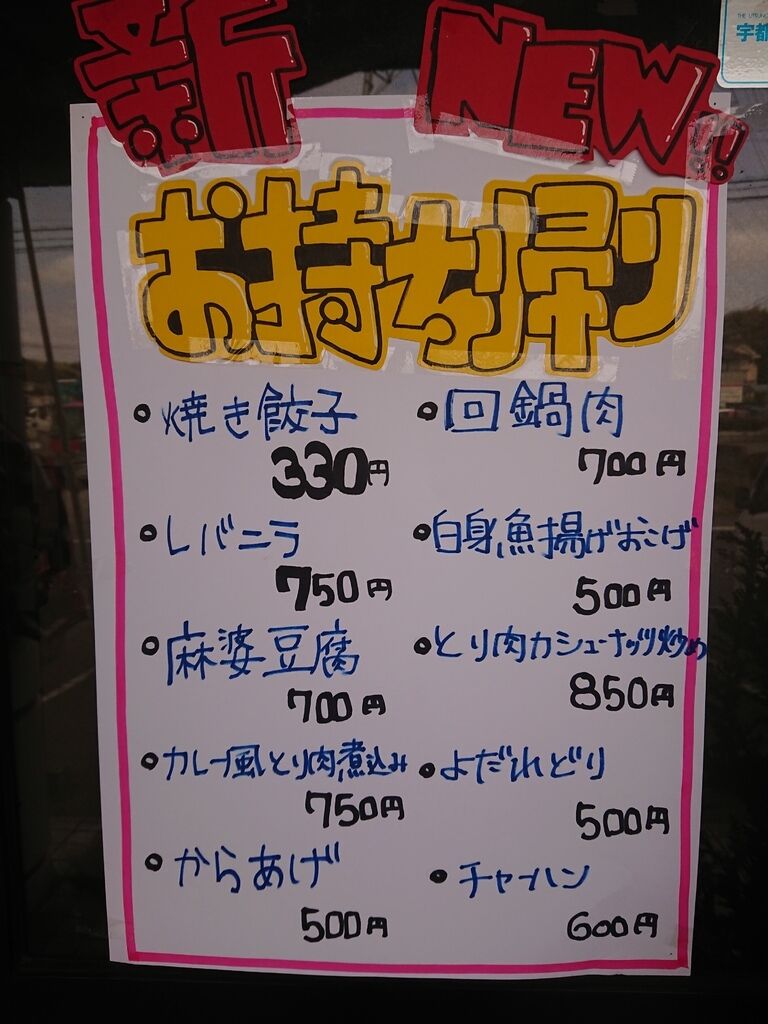 新 NEW!!
お持ち帰り
・焼き餃子
330円
・レバニラ
750円
・麻婆豆腐
700円
・カレー風とり肉煮込み
750円
・からあげ
500円
・回鍋肉
700円
・白身魚揚げおこげ
500円
・とり肉カシューナッツ炒め
850円
・よだれどり
500円
・チャーハン
600円
宇都